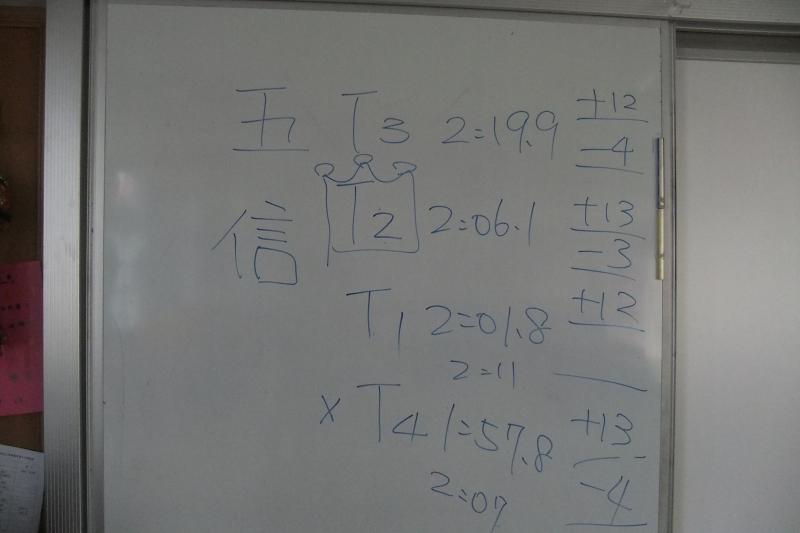 五 T3 2=19.9 +12
-4
信 T2 2=06.1 +13
-3
T1 2=01.8 +12
2=11
× T4 1=57.8 +13
2=07 -4